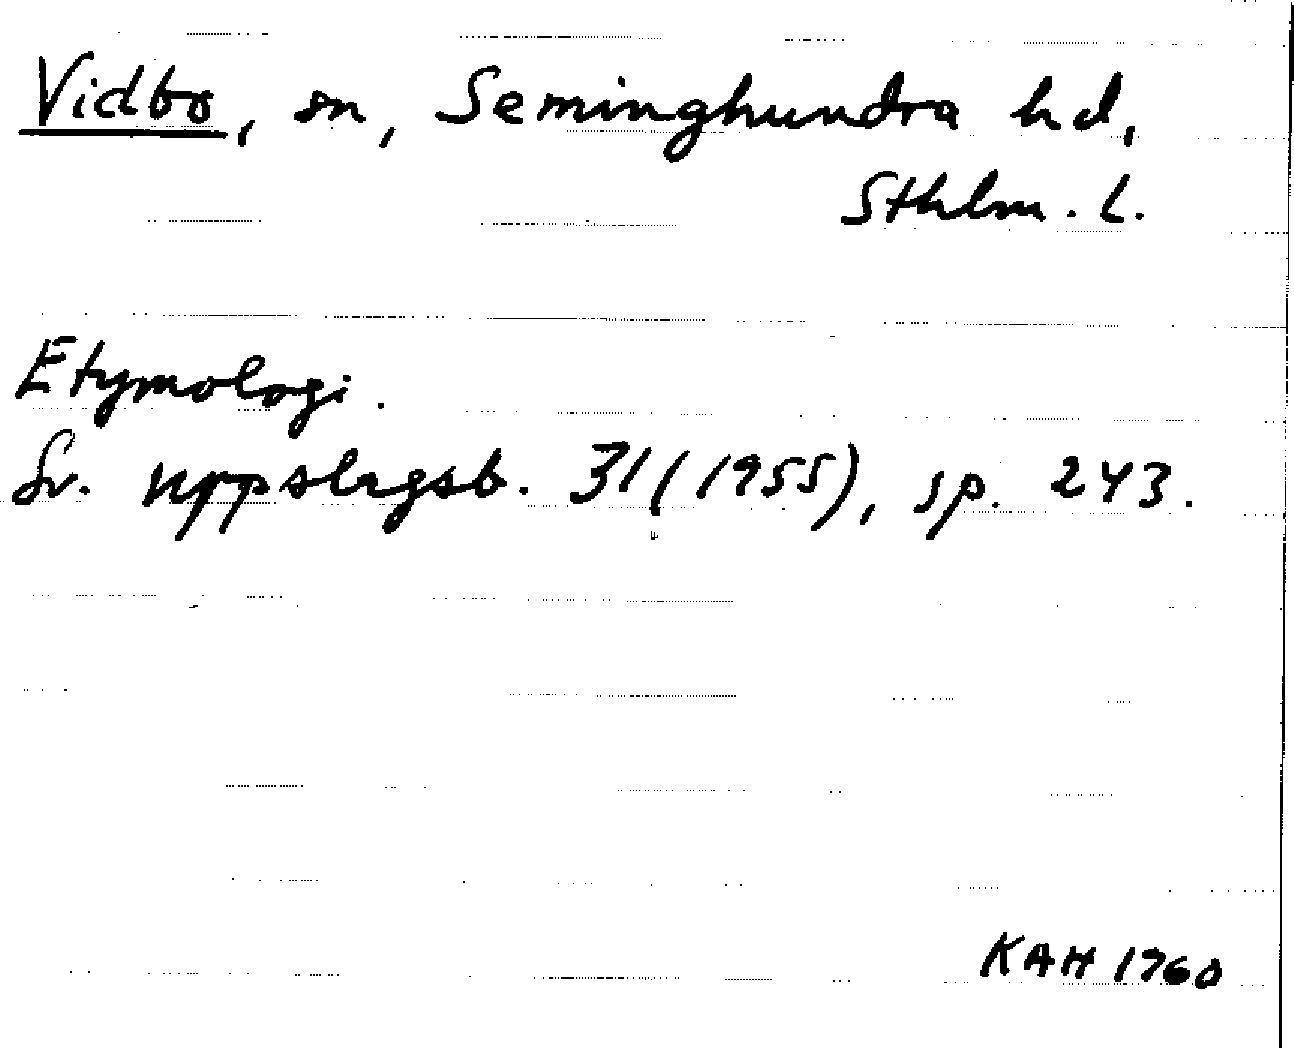 Vidbo, sn, Seminghundra hd,
Sthlm. l.
Etymologi.
Sv. uppslagsb. 31 (1955), sp. 243.
KAH 1960